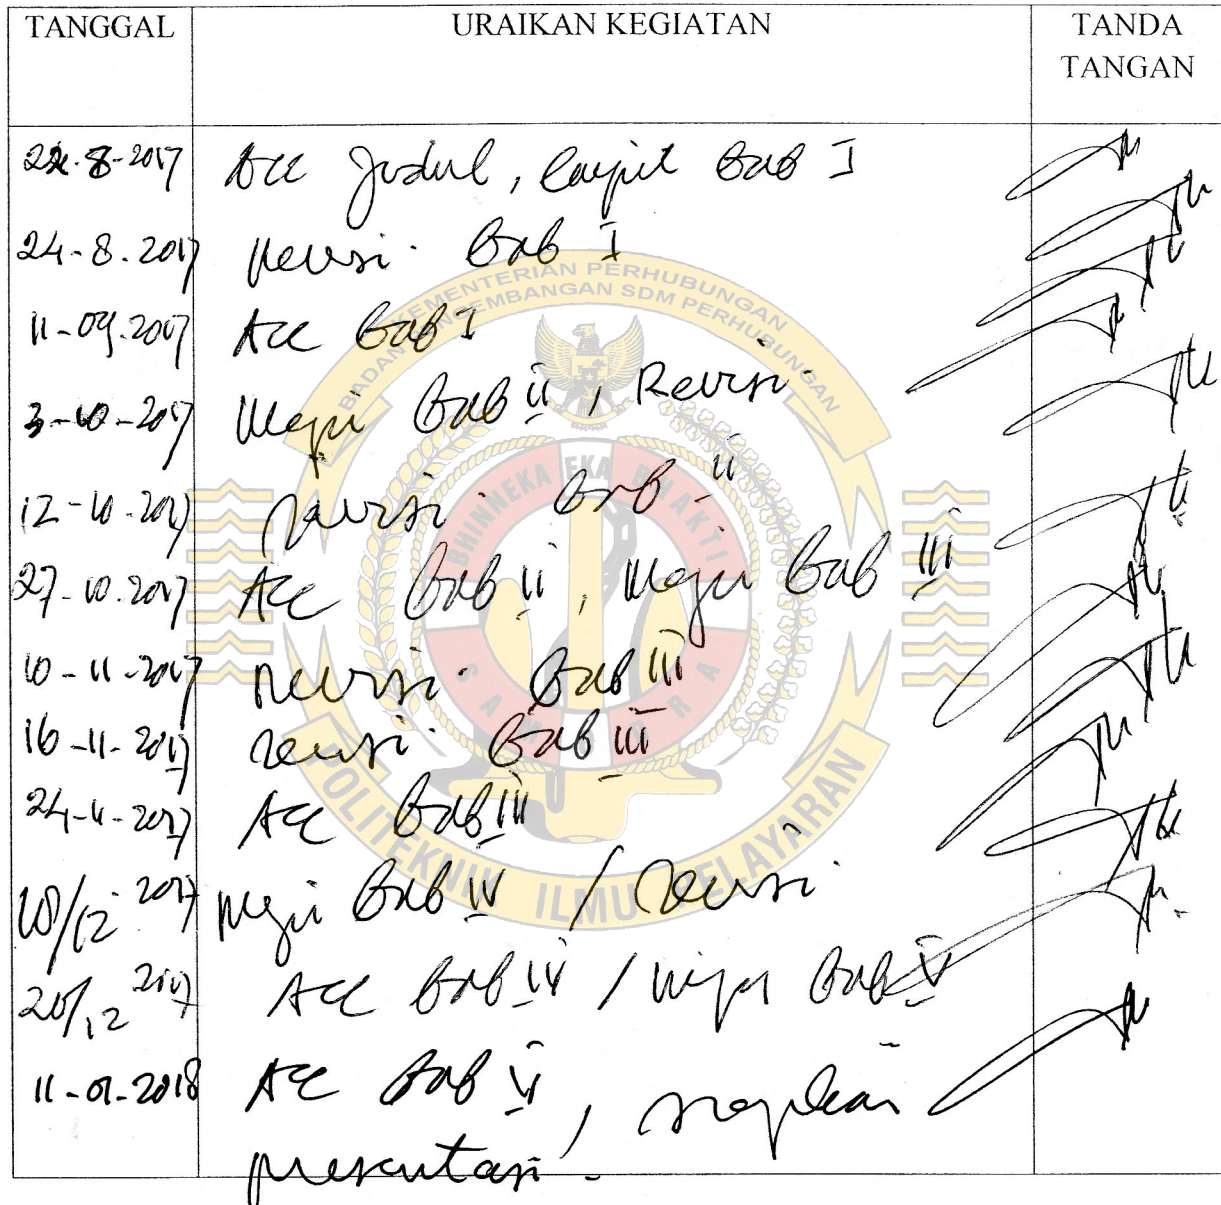 TANGGAL URAIKAN KEGIATAN TANDA TANGAN
22-8-2017 Acc Judul, lanjut Bab I
24-8-2017 Revisi Bab I
11-09-2017 Acc Bab I
3-10-2017 Maju Bab II, Revisi
12-10-2017 Revisi Bab II
27-10-2017 Acc Bab II, Maju Bab III
10-11-2017 Revisi Bab III
16-11-2017 Revisi Bab III
24-11-2017 Acc Bab III
/12 2017 Maju Bab IV / Revisi
20/12 2017 Acc Bab IV / Maju Bab V
11-01-2018 Acc Bab V, siapkan
presentasi.
KEMENTERIAN PERHUBUNGAN
BADAN PENGEMBANGAN SDM PERHUBUNGAN
BHINNEKA EKA BHAKTI
POLITEKNIK ILMU PELAYARAN